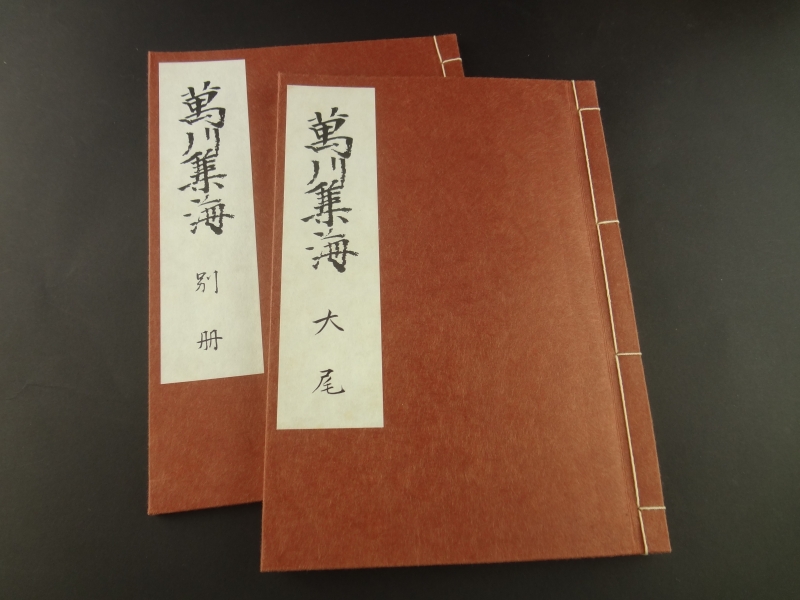 萬川集海
大尾
萬川集海
別册